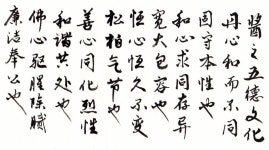 酱之五德文化
丹心和而不同
固守本性也
和心求同存异
宽大包容也
恒心恒久不变
松柏气节也
善心同化烈性
和谐共处也
佛心驱腥除腻
廉洁奉公也